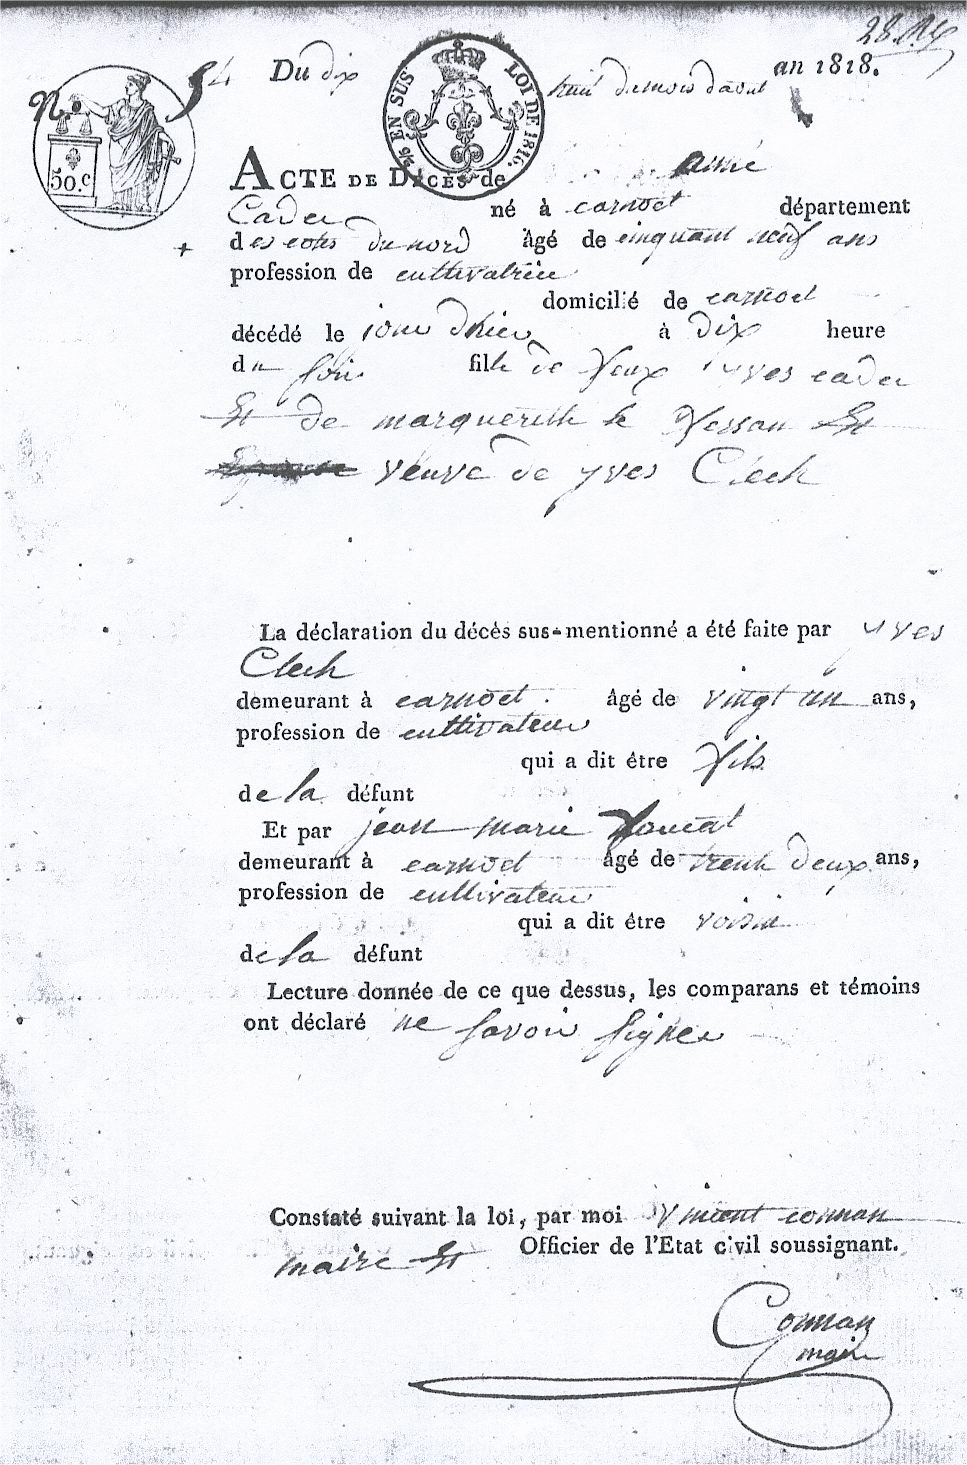 28.
N° 54 Du dix huit du mois d'aout an 1818.
5/6 EN SUS LOI DE 1816.
50.c
ACTE DE DÉCÈS de anne
Cader né à carnoet département
des cotes du nord âgé de cinquant neuf ans
profession de cultivatrice
domicilié de carnoet
décédé le jour d'hier à dix heure
du soir fille de feux yves cader
Et de marguerithe le Hessan Et
veuve de yves Clech
La déclaration du décès sus-mentionné a été faite par yves
Clech
demeurant à carnoet âgé de vingt un ans,
profession de cultivateur
qui a dit être fils
de la défunt
Et par jean marie
demeurant à carnoet âgé de trente deux ans,
profession de cultivateur
qui a dit être voisin
de la défunt
Lecture donnée de ce que dessus, les comparans et témoins
ont déclaré ne savoir signer
Constaté suivant la loi, par moi vincent connan
maire Et Officier de l'Etat civil soussignant.
Connan
maire